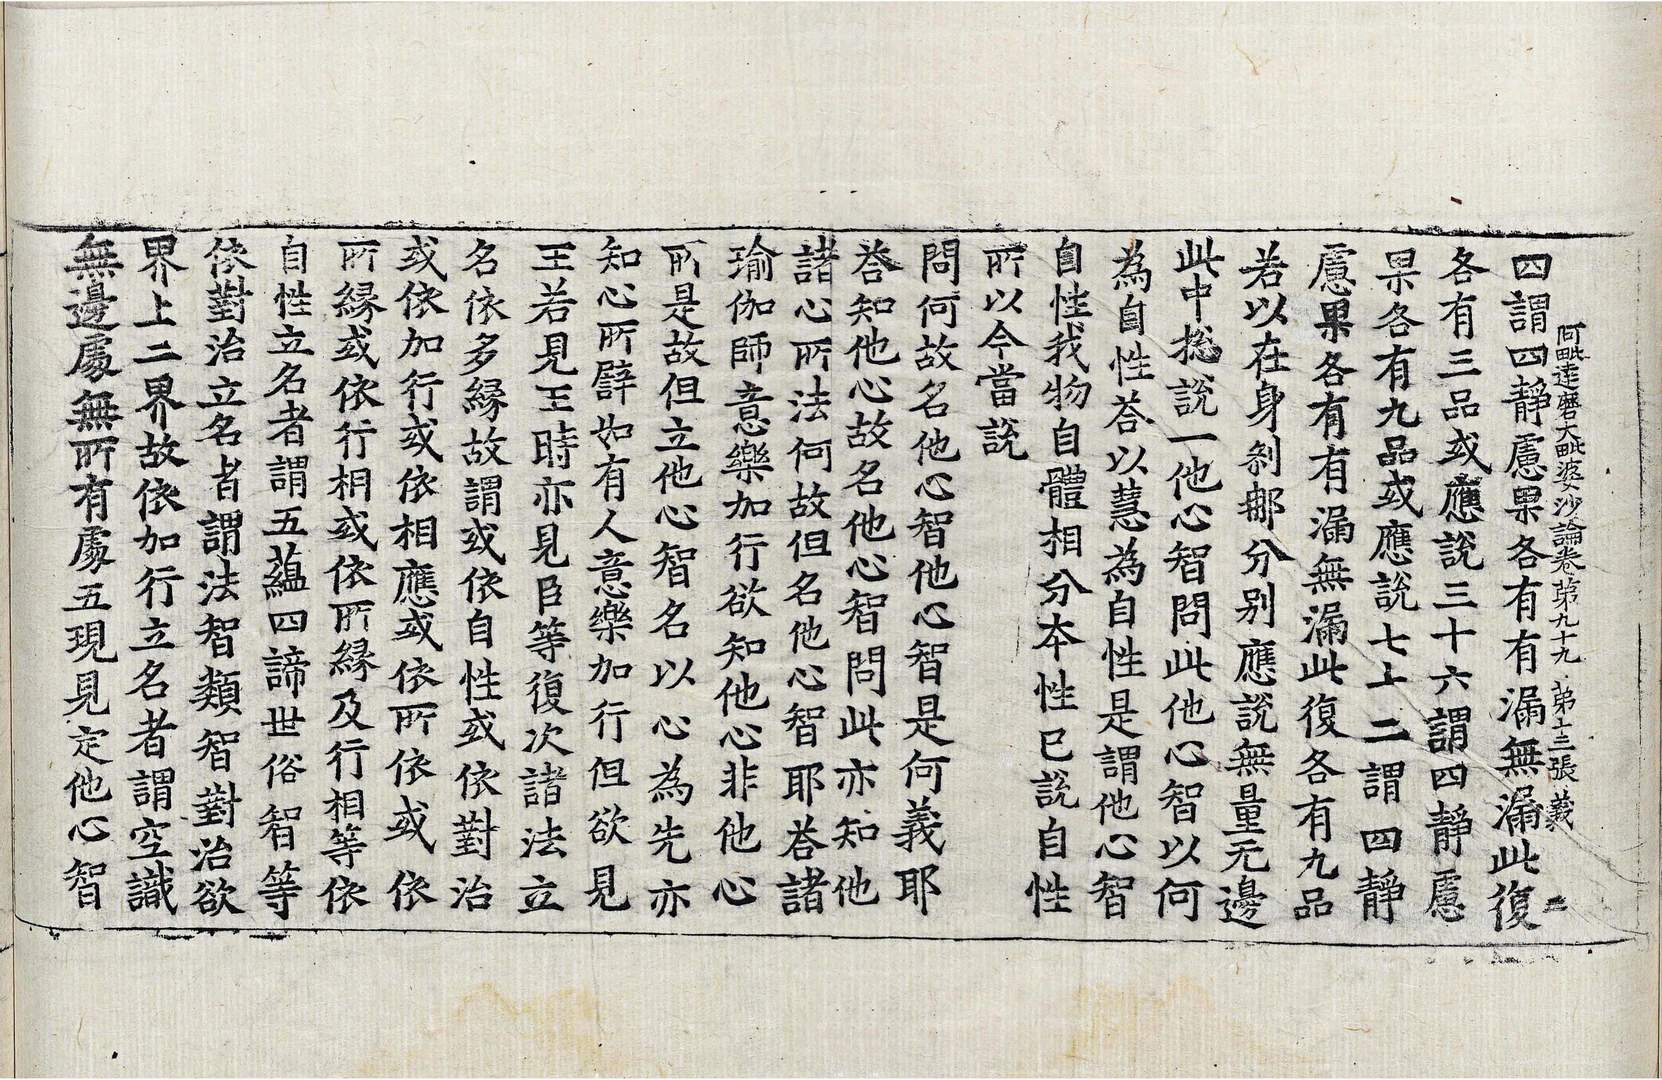 阿毗達磨大毗婆沙論卷第九十九 第十三張 義 二
四謂四靜慮果各有有漏無漏此復
各有三品或應說三十六謂四靜慮
果各有九品或應說七十二謂四靜
慮果各有有漏無漏此復各有九品
若以在身剎那分別應說無量无邊
此中捴說一他心智問此他心智以何
為自性荅以慧為自性是謂他心智
自性我物自體相分本性已說自性
所以今當說
問何故名他心智他心智是何義耶
荅知他心故名他心智問此亦知他
諸心所法何故但名他心智耶荅諸
瑜伽師意樂加行欲知他心非他心
所是故但立他心智名以心為先亦
知心所譬如有人意樂加行但欲見
王若見王時亦見臣等復次諸法立
名依多緣故謂或依自性或依對治
或依加行或依相應或依所依或依
所緣或依行相或依所緣及行相等依
自性立名者謂五蘊四諦世俗智等
依對治立名者謂法智類智對治欲
界上二界故依加行立名者謂空識
無邊處無所有處五現見定他心智